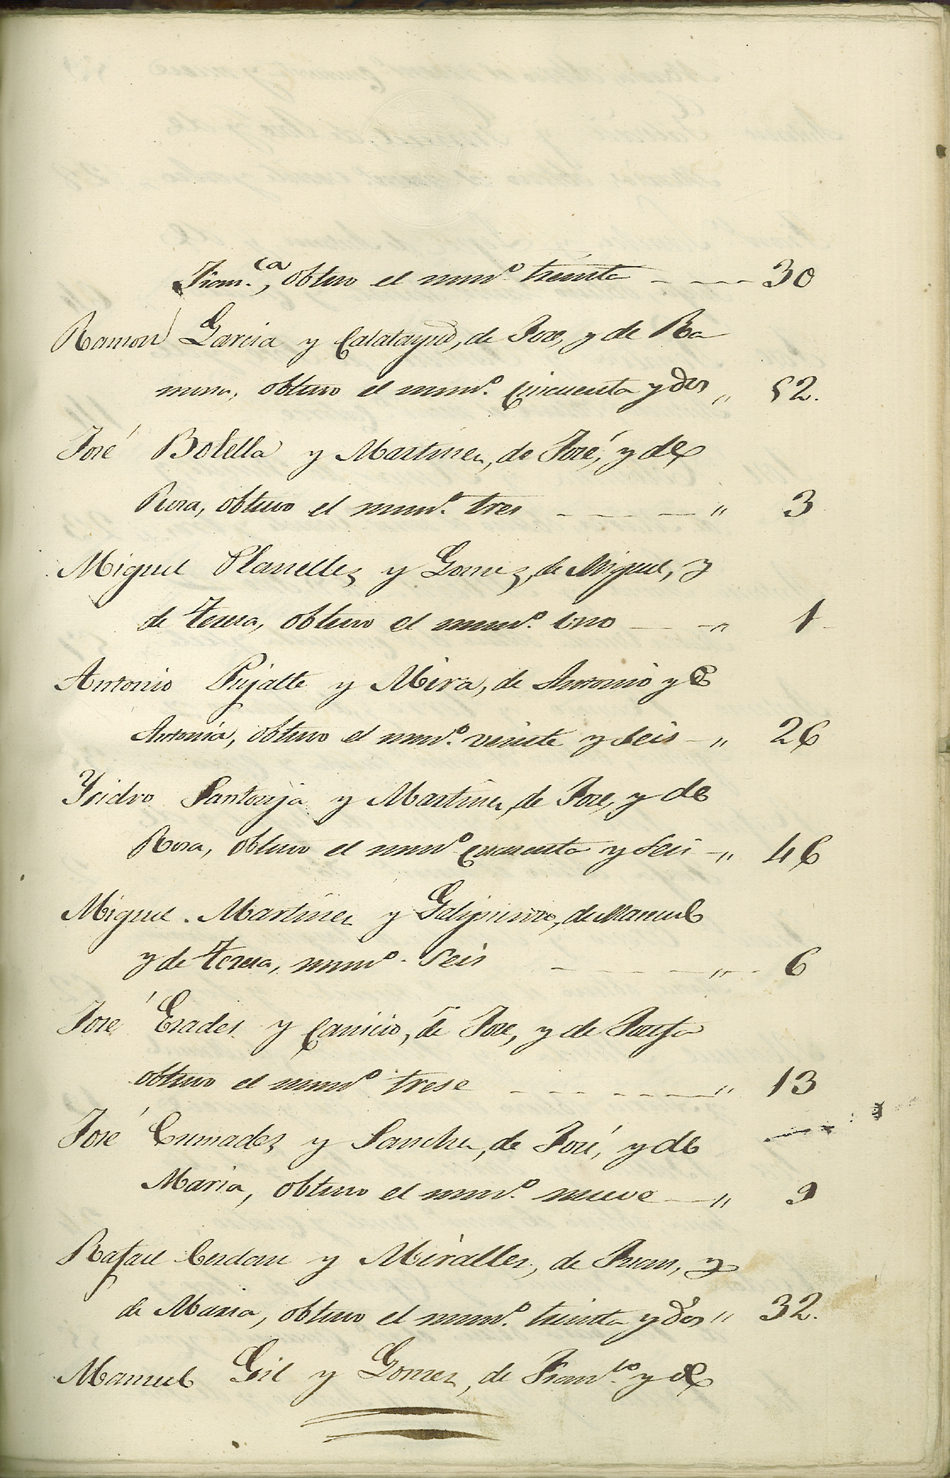 Fran.ca, obtuvo el num.o treinta - - - - 30
Ramon Garcia y Calatayud, de Jose, y de Ra
mona, obtuvo el num.o cincuenta y dos „ 52.
José Botella y Martinez, de José, y de
Rosa, obtuvo el num.o tres - - - - „ 3
Miguel Planelles y Gomez, de Miguel, y
de Teresa, obtuvo el num.o uno - - „ 1
Antonio Pujalte y Mira, de Antonio y de
Antonia, obtuvo el num.o veinte y seis - „ 26
Ysidro Santonja y Martinez, de Jose, y de
Rosa, obtuvo el num.o cuarenta y seis - „ 46
Miguel Martinez y Galipienso, de Manuel
y de Teresa, num.o seis - - - - „ 6
José Erades y Canicio, de Jose, y de Josefa
obtuvo el num.o trese - - - - „ 13
José Cremades y Sanchez, de José, y de
Maria, obtuvo el num.o nueve - „ 9
Rafael Cerdan y Miralles, de Juan, y
de Maria, obtuvo el num.o treinta y dos „ 32.
Manuel Gil y Gomez, de Fran.co y de